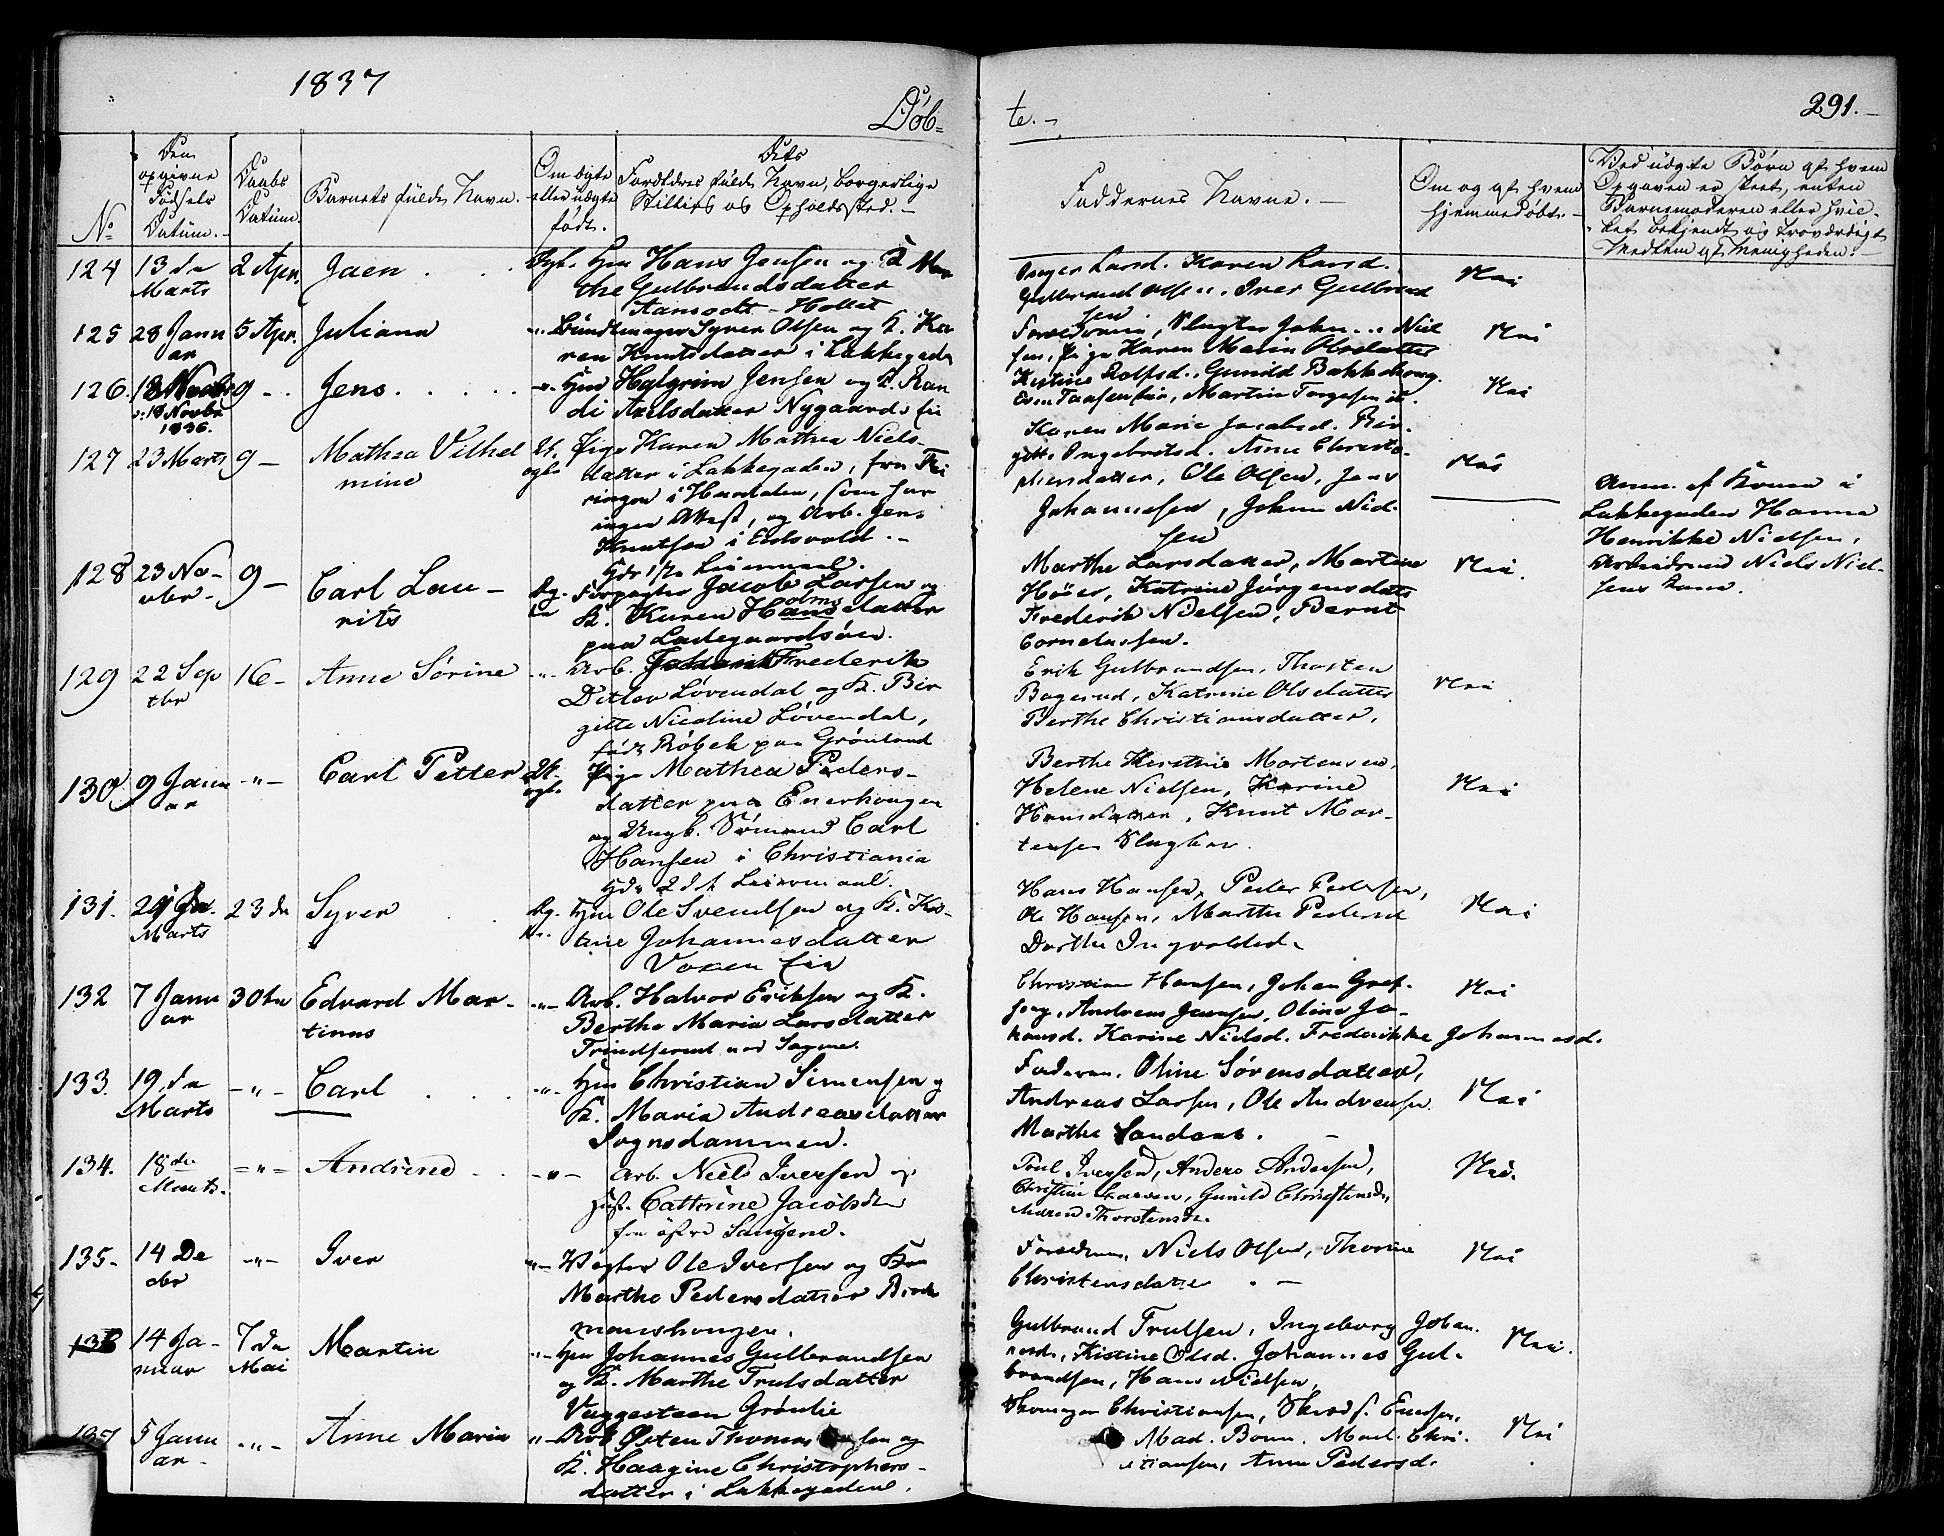 1837
Døb-
te. -
291. -
No
Den opgivne Fødsels Datum. -
Daabs Datum.
Barnets fulde Navn.
Om ægte eller uægte født.
Dets Forældres fulde Navn, borgerlige Stilling og Opholdssted. -
Faddernes Navne. -
Om og af hvem hjemmedøbt. -
Ved uægte Børn af hvem Opgaven er skeet, enten Barnemoderen eller hvilket bekjendt og troværdigt Medlem af Menigheden. -
124
13 de Marts
2 Apr.
Jaen
Hans Jensen og K. Mar
the Gulbrandsdatter
Inger Larsd. Karen Larsd.
Gulbrand Olsen, Iver Gulbrand
sen
Nei
125
28 Janu
ar
5 Apr.
Juliana
Syver Olsen og K. Ka
ren Knutsdatter i Lakkegade
Niel
sen, Pige Karen Marie Olsdatter
Nei
126.
18 Novbr
1836.
9 -
Jens
Halgrim Jensen og K. Ran
di Axelsdatter Nygaards Eie
Kistine Rolfsd. Gunild Bakkehoug
Martin Torgesen
Nei
127
23 Marts
9 -
Mathea Vilhel
mine
Pige Karen Mathea Niels-
datter i Lakkegaden, fra
i Hurdalen, som har
ingen Attest, og Arb. Jens
Knutsen i Eidsvold. -
Karen Marie Jacobsd. Bir-
gitte Ingebretsd. Anne Christo-
phersdatter, Ole Olsen, Jens
Johannesen, Johan Niel-
sen
Nei
Anm. af Konen i
Lakkegaden Hanna
Henrikke Nielsen,
Arbeidsmand Niels Niel-
sens Kone.
128
23 No-
vbr -
9 -
Carl Lau -
rits
Jacob Larsen og
K. Karen Holmsdatter
paa Ladegaardsøen.
Marthe Larsdatter, Martine
Høier, Katrine Jørgensdatter
Frederik Nielsen, Bernt
Corneliussen.
Nei.
129
22 Sep
tbr
16 -
Anne Sørine
Arb. Frederik
Ditlev Løvendal og K. Bir
gitte Nicoline Løvendal,
født Røbek paa Grønland
Erik Gulbrandsen, Thosten
Bagerud, Katrine Olsdatter
Berthe Christiansdatter.
Nei
130
9 Janu
ar
-"-
Carl Petter
Pige Mathea Peders-
datter paa Enerhougen
og Ungk. Sømand Carl
Hansen i Christiania
Berthe Kirstine Mortensen,
Helene Nielsen, Karine
Hansdatter, Knut Mor-
tensen
Nei
131.
Marts
23 de
Syver
Ole Svendsen og K. Kis-
tine Johannesdatter
Voxen Eie
Hans Hansen, Peder Pedersen,
Ole Hansen, Marthe Pedersd
Dorthe Ingvoldsd.
Nei
132
7 Janu
ar
30 te
Edvard Mar-
tinus
-"-
Arb. Halvor Eriksen og K.
Berthe Maria Larsdatter
Christian Hansen, Johan Gref-
seng, Andreas Jensen, Oline Jo-
hansd. Karine Nielsd. Frederikke Johannesd.
Nei
133.
19 de
Marts
-"-
Carl
-"-
Christian Simensen og
K. Maria Andreasdatter
Sognsdammen.
Faderen. Oline Sørensdatter,
Andreas Larsen, Ole Andreasen.
Marthe Sandaas. -
Nei
134.
18 de
Marts.
-"-
Andrine
-"-
Arb. Niels Iversen og
Cathrine Jacobsd
Poul Iversen, Anders Andersen,
Christine Larsen, Gunild Christensd.
Maren Thorstensd.
Nei.
135.
14 De
cbr
-"-
Iver
-"-
Vægter Ole Iversen og Kone
Marthe Pedersdatter Brink
manshougen.
Forældrene, Niels Olsen, Thorine
Christensdatter
Nei
136
14 Ja-
nuar
7 de
Mai
Martin
-"-
Johannes Gulbrandsen
og K. Marthe Trulsdatter
Vaggesteen Grønlie
Gulbrand Trulsen, Ingeborg Johan
nesd., Kistine Olsd. Johannes Gul-
brandsen, Hans Nielsen,
Nei.
137
5 Janu
ar -
-"-
Anne Maria
-"-
Arb Østen Thomassen og
K. Haagine Christophers-
datter i Lakkegaden.
Skomager Christiansen,
Mad. Chri-
stiansen, Anne Pedersd.
Nei